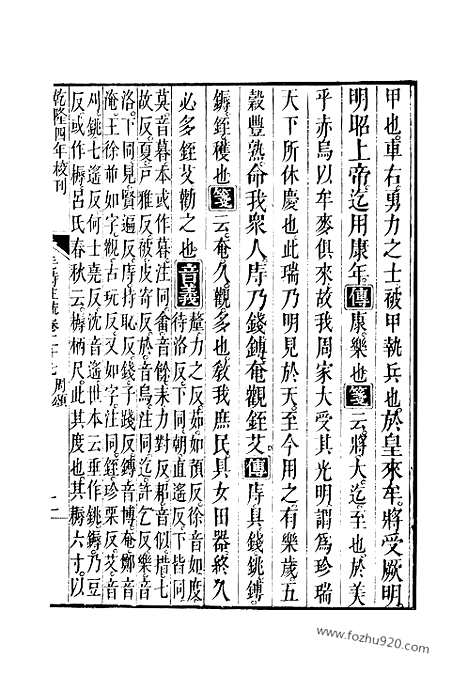 甲也車右勇力之士被甲執兵也於皇來牟將受厥明
明昭上帝迄用康年傳康樂也箋云將大迄至也於美
乎赤烏以牟麥俱來故我周家大受其光明謂為珍瑞
天下所休慶也此瑞乃明見於天至今用之有樂歲五
穀豐熟命我眾人庤乃錢鎛奄觀銍艾傳庤具錢銚鎛
鎒銍穫也箋云奄久觀多也敎我庶民具女田器終久
必多銍艾勸之也音義釐力之反如如預反徐音如度
待洛反下同朝直遙反下皆同
莫音暮本或作暮注同畲音餘耒力對反耜音似措七
故反夏戸雅反被皮寄反於音烏注同迄許乞反樂音
洛下同見賢遍反庤持恥反錢子踐反鎛音博奄鄭音
淹王徐並如字觀古玩反又如字注同銍珍栗反艾音
刈銚七遙反何士堯反沈音遙世本云垂作銚鎒乃豆
反或作耨呂氏春秋云耨柄尺此其度也其耨六寸以
乾隆四年校刊
周頌
www.fozhu920.com